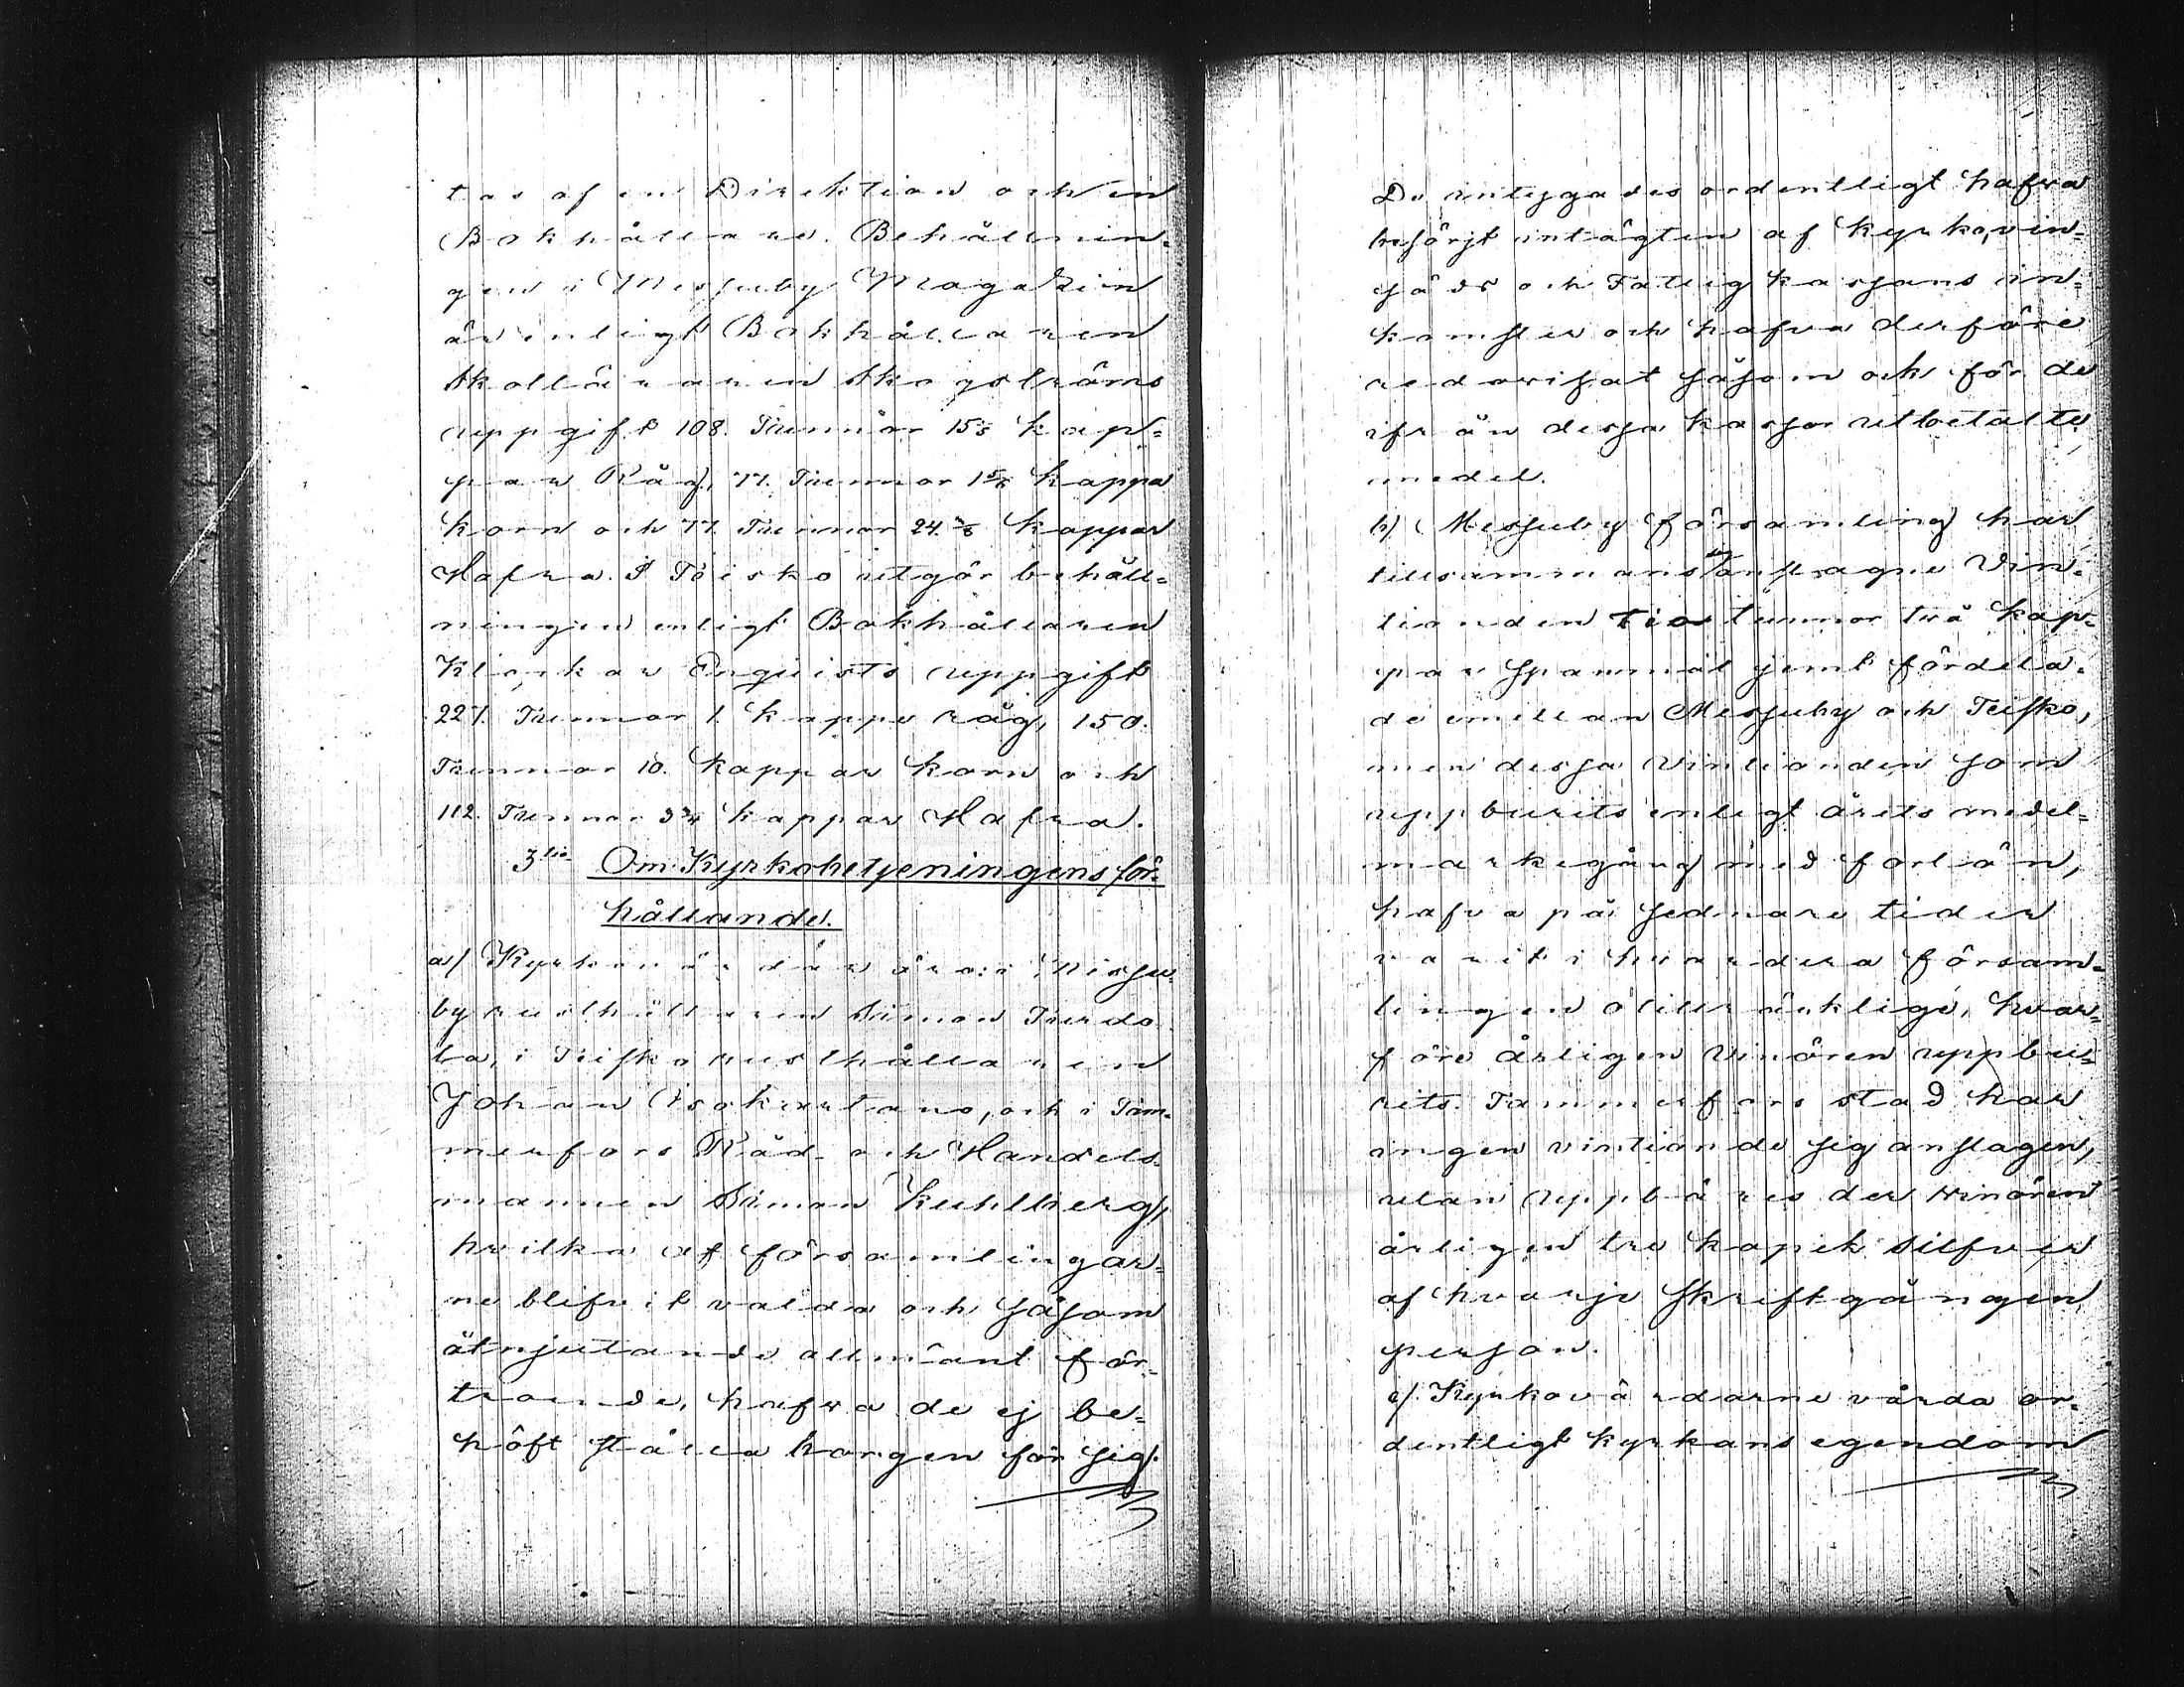 tas af en Direktion och en
Bokhållare. Behållnin=
gen i Messuby Magazin
är enligt Bokhållaren
Skolläraren Skogströms
uppgift 108. Tunnor 15 kap=
par Råg, 77. Tunnor kappa
korn och 77. Tunnor 24. kappar
Hafra. I Teisko utgör behåll=
ningen enligt Bokhållaren
Klockar Enqvists uppgift
227. Tunnor 1. kappe råg, 150.
Tunnor 10. kappar korn och
112. Tunnor 3 3/4 kappar Hafra.
3tio Om Kyrkobetjeningens för=
hållande.
a/ Kyrkovärdar äro: i Messu=
by rusthållaren Simon Turdo
la, i Teisko rusthållaren
Johan och i Tam=
merfors Råd- och Handels=
mannen Simon Kuhlberg,
hvilka af församlingar=
ne blifvit valda och såsom
åtnjutande allmänt för=
troende, hafva de ej be=
höft ställa borgen för sig.
De intygades ordentligt hafva
besörjt intägten af kyrko, vin=
säds och Fattig kassans in=
komster och hafva derföre
redovisat såsom och för de
ifrån dessa kassor utbetalte
medel.
b) Messuby församling har
tillsammans anslagne Vin=
tionden tio tunnor två kap=
par spanmål jemt fördela=
de emellan Messuby och Teisko,
men dessa vintionden som
uppburits enligt årets medel=
markegång med forlön,
hafva på sednare tider
varit i hvardera försam=
lingen otillräcklige, hvar=
före årligen vinören uppbu=
rits. Tammerfors stad har
ingen vintionde sig anslagen,
utan uppbäres der vinören
årligen tre kopek silfver
af hvarje skriftgången
person.
c/ Kyrkovärdarne vårda or=
dentligt kyrkans egendom